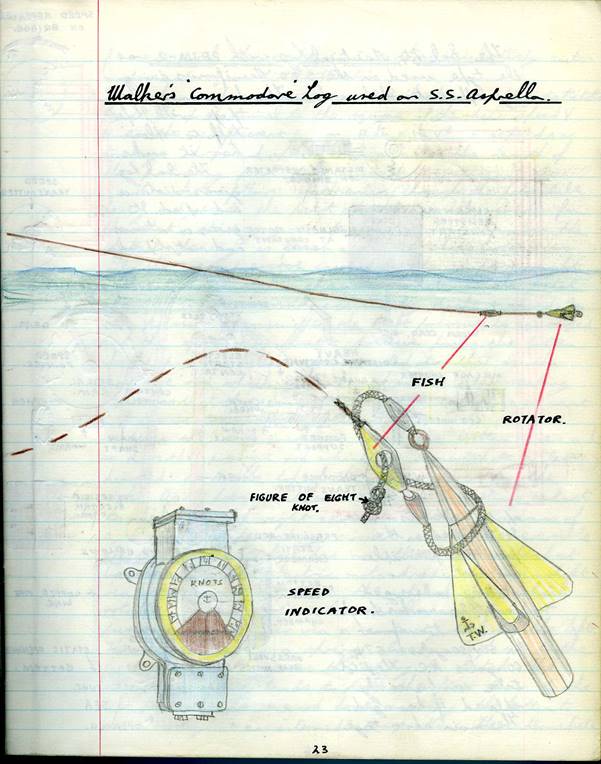 Walker's 'Commodore' Log used on S.S. Asprella.
FISH
ROTATOR.
FIGURE OF EIGHT
KNOT.
KNOTS
SPEED
INDICATOR.
T.W.
23